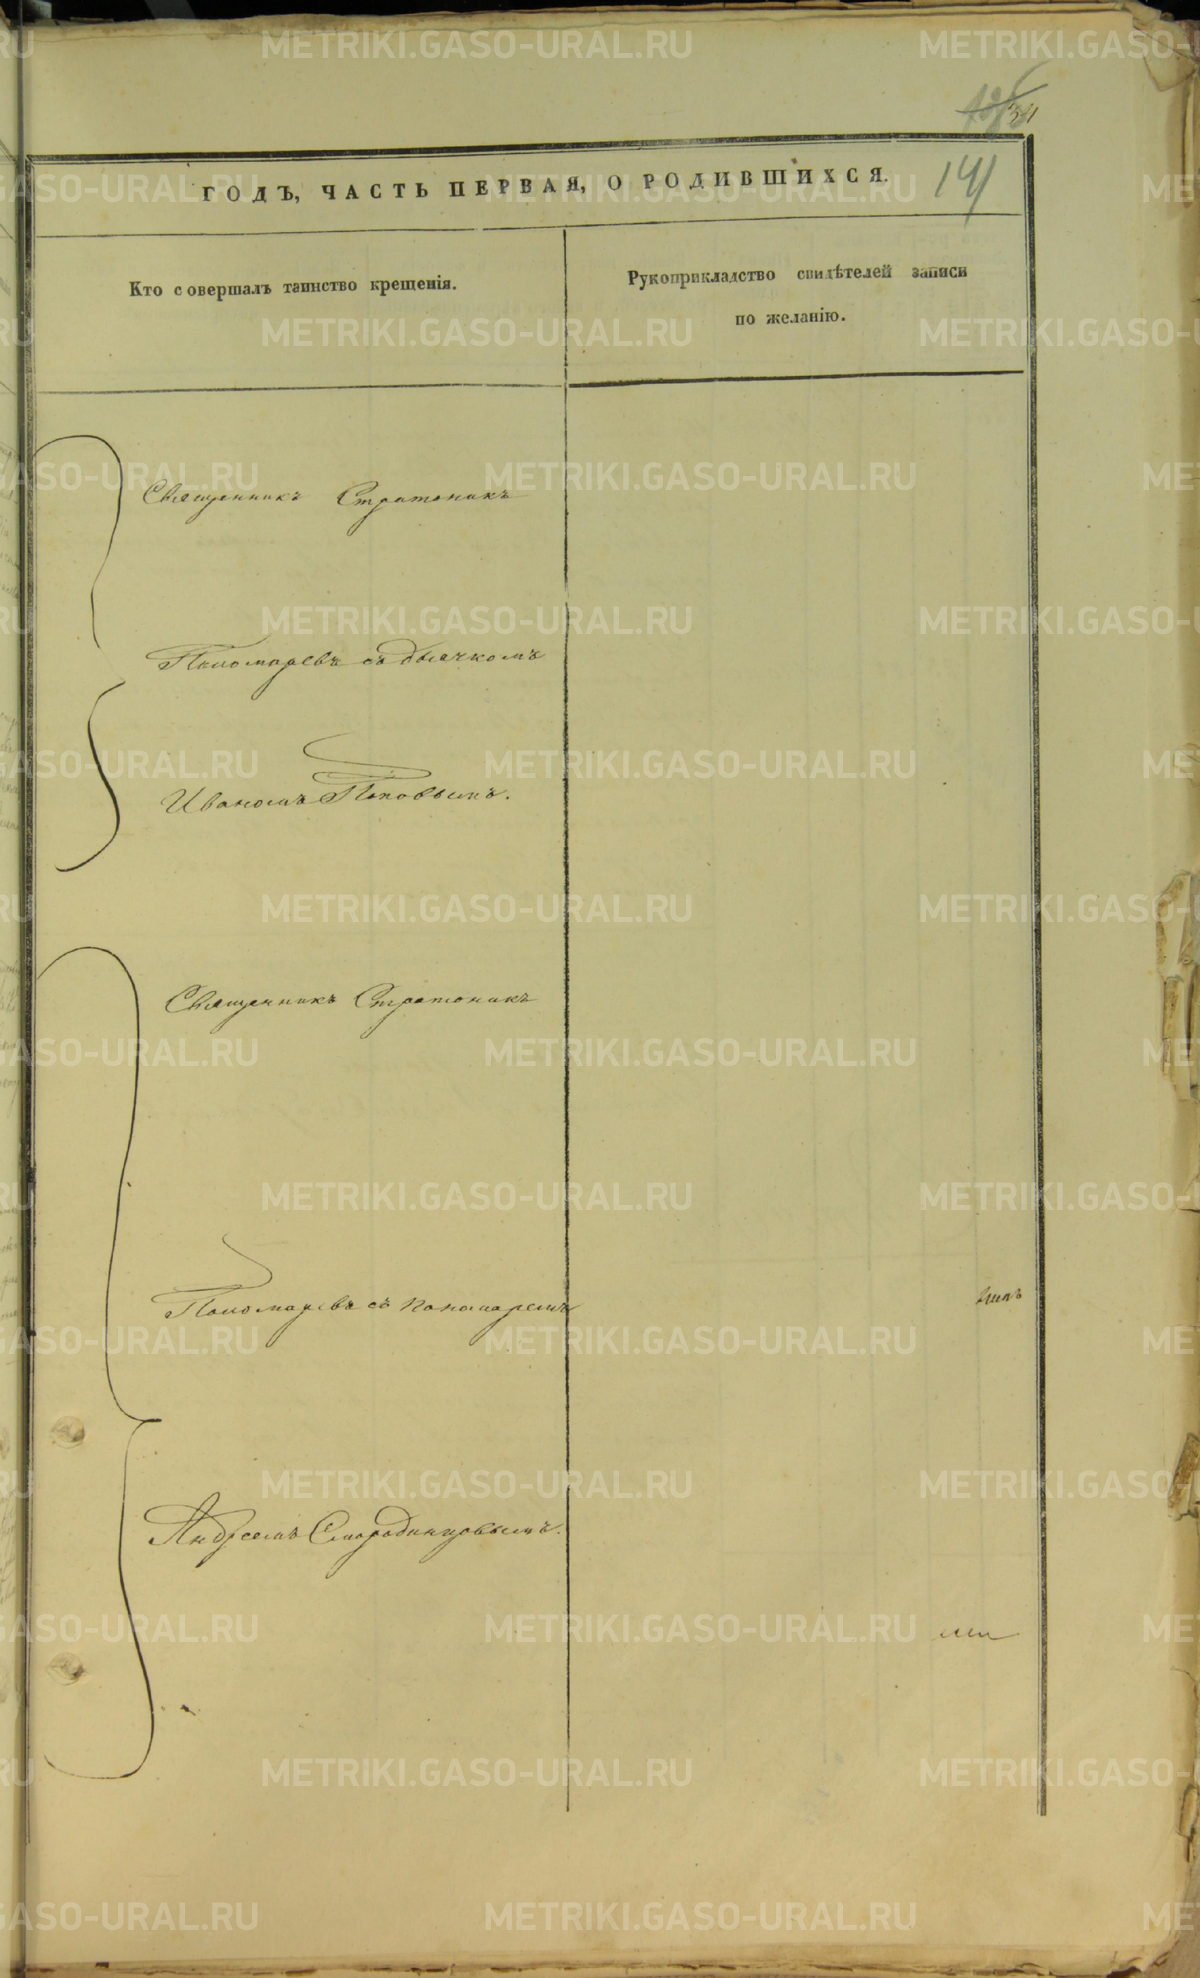 ГОДЪ, ЧАСТЬ ПЕРВАЯ, О РОДИВШИХСЯ.
141
Кто совершалъ таинство крещенія.
Рукоприкладство свидѣтелей записи
по желанію.
Священникъ Стратоникъ
Пономаревъ съ дьячкомъ
Иваномъ Поповымъ.
Священникъ Стратоникъ
Пономаревъ съ пономаремъ
Андреемъ Смородинцовымъ.
METRIKI.GASO-URAL.RU